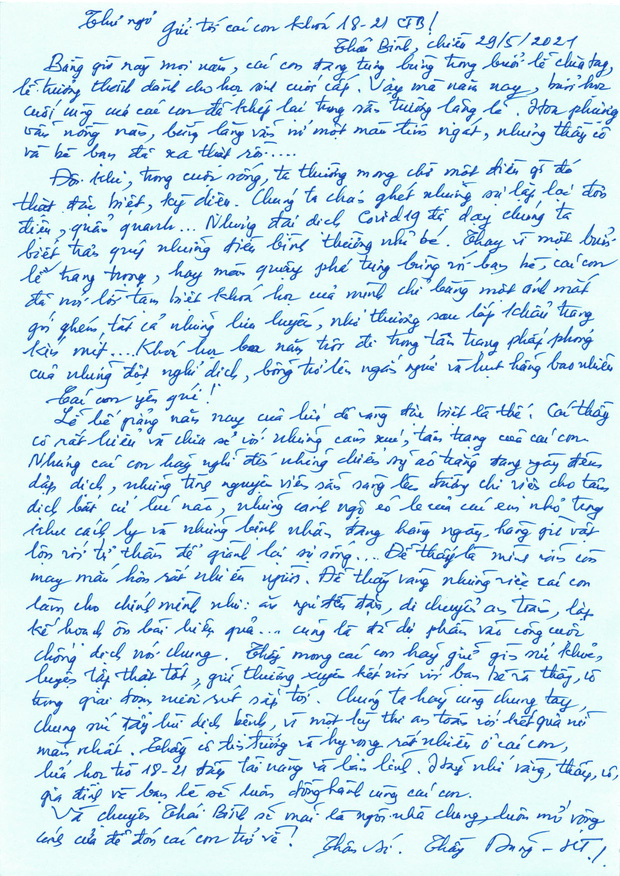 Thư ngỏ
gửi tới các con khoá 18-21 CTB!
Thái Bình, chiều 29/5/2021
Bằng giờ này mọi năm, các con đang tưng bừng trong buổi lễ chia tay,
lễ trưởng thành dành cho học sinh cuối cấp. Vậy mà năm nay, buổi học
cuối cùng của các con đã khép lại trong sân trường lặng lẽ. Hoa phượng
vẫn nồng nàn, bằng lăng vẫn nở một màu tím ngát, nhưng thầy cô
và bè bạn đã xa thật rồi....
Đôi khi, trong cuộc sống, ta thường mong chờ một điều gì đó
thật đặc biệt, kỳ diệu. Chúng ta chán ghét những sự lặp lại đơn
điệu, quẩn quanh... Nhưng đại dịch Covid19 đã dạy chúng ta
biết trân quý những điều bình thường nhỏ bé. Thay vì một buổi
lễ trang trọng, hay màn quậy phá tưng bừng với bạn bè, các con
đã nói lời tạm biệt khoá học của mình chỉ bằng một ánh mắt
gói ghém, tất cả những lưu luyến, nhớ thương sau lớp khẩu trang
kín mít.... Khoá học ba năm trôi đi trong tâm trạng phấp phỏng
của những đợt nghỉ dịch, bỗng trở lên ngắn ngủi và hụt hẫng bao nhiêu
Các con yêu quý!
Lễ bế giảng năm nay của lứa dê vàng đặc biệt là thế. Các thầy
cô rất hiểu và chia sẻ với những cảm xúc, tâm trạng của các con.
Nhưng các con hãy nghĩ đến những chiến sỹ áo trắng đang ngày đêm
dập dịch, những tình nguyện viên sẵn sàng lên đường chi viện cho tâm
dịch bất cứ lúc nào, những cảnh ngộ éo le của các em nhỏ trong
khu cách ly và những bệnh nhân đang hàng ngày, hàng giờ vật
lộn với tử thần để giành lại sự sống.... Để thấy là mình vẫn còn
may mắn hơn rất nhiều người. Để thấy rằng những việc các con
làm cho chính mình như: ăn ngủ đều đặn, di chuyển an toàn, lập
kế hoạch ôn bài hiệu quả... cũng là đã dự phần vào công cuộc
chống dịch nói chung. Thầy mong các con hãy giữ gìn sức khoẻ,
luyện tập thật tốt, giữ thường xuyên kết nối với bạn bè và thầy, cô
trong giai đoạn nước rút sắp tới. Chúng ta hãy cùng chung tay,
chung sức đẩy lùi dịch bệnh, vì một kỳ thi an toàn với kết quả mỹ
mãn nhất. Thầy cô tin tưởng và hy vọng rất nhiều ở các con,
lứa học trò 18-21 đầy tài năng và bản lĩnh. Hãy nhớ rằng, thầy, cô,
gia đình và bạn bè sẽ luôn đồng hành cùng các con.
Và chuyên Thái Bình sẽ mãi là ngôi nhà chung, luôn mở rộng
cánh cửa để đón các con trở về!
Thân ái. Thầy Dũng - HT.!